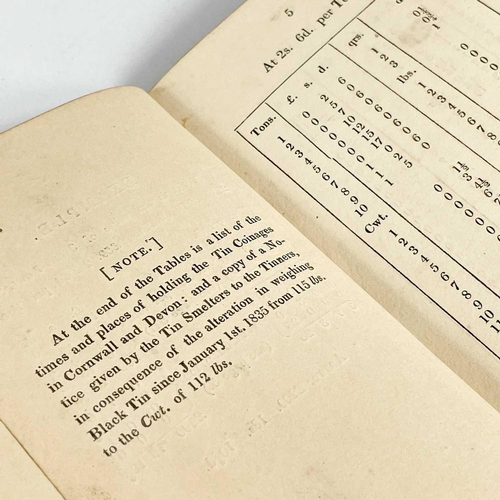 [NOTE.]
At the end of the Tables is a list of the
times and places of holding the Tin Coinages
in Cornwall and Devon: and a copy of a No-
tice given by the Tin Smelters to the Tinners,
in consequence of the alteration in weighing
Black Tin since January 1st, 1835 from 115 lbs.
to the Cwt. of 112 lbs.
5
At 2s. 6d. per
Tons. £. s. d.
1 0 2 6
2 0 5 0
3 0 7 6
4 0 10 0
5 0 12 6
6 0 15 0
7 0 17 6
8 1 0 0
9 1 2 6
10 1 5 0
Cwt.
1
2
3
4
5
6
7
8
9
10
qrs.
1
2
3
lbs.
1
2
3
4
5
6
7
8